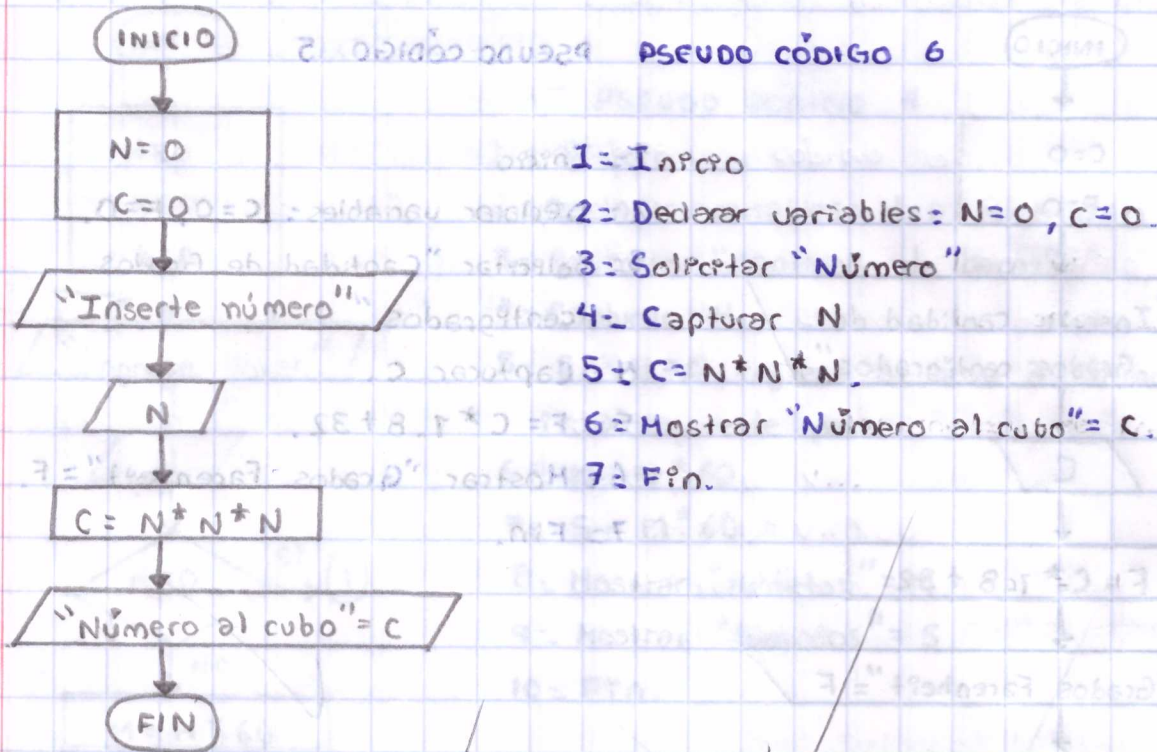 INICIO
N=0
C=0
"Inserte número"
N
C= N*N*N
"Número al cubo"= C
FIN
PSEUDO CÓDIGO 6
1= Inicio
2= Declarar variables= N=0, C=0.
3= Solicitar "Número"
4=. Capturar N
5= C= N*N*N.
6= Mostrar "Número al cubo"= C.
7= Fin.